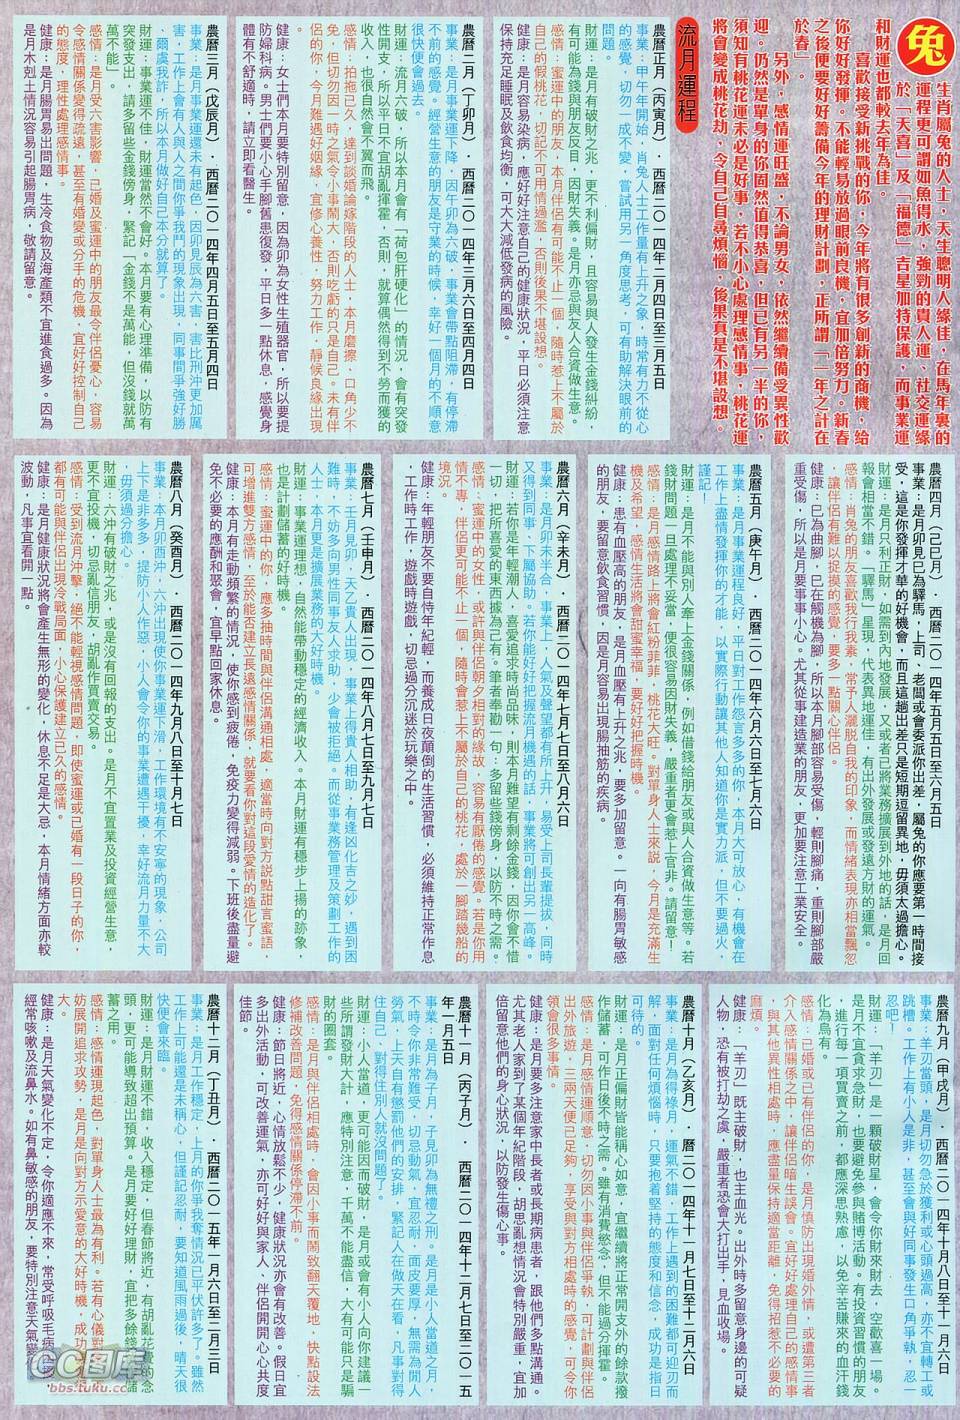 兔
生肖屬兔的人士，天生聰明人緣佳，在馬年裏的
運程更可謂如魚得水，強勁的貴人運、社交運緣
於「天喜」及「福德」吉星加持保護，而事業運
和財運也都較去年為佳。
喜歡接受新挑戰的你，今年將有很多創新的商機，給
你好好發揮。不能輕易放過眼前良機，宜加倍努力。新春
之後便要好好籌備今年的理財計劃，正所謂「一年之計在
於春」。
另外，感情運旺盛，不論男女，依然繼續備受異性歡
迎。仍然是單身的你固然值得恭喜，但已有另一半的你，
須知有桃花運未必是好事，若不小心處理感情事，桃花運
將會變成桃花劫，令自己自尋煩惱，後果真是不堪設想。
流月運程
農曆正月（丙寅月），西曆二〇一四年二月四日至三月五日
事業：甲午年開始，肖兔人士工作量有上升之象，時常有力不從心
的感覺，切勿一成不變，嘗試用另一角度思考，可有助解決眼前的
問題。
財運：是月有破財之兆，更不利偏財，且容易與人發生金錢糾紛，
突有可能與友反目，因財失義。是月亦忌與友人合資做生意。
感情：蜜運中的朋友，本月伴侶有可能不止一個，隨時惹上不屬於
自己的假桃花，切記不可用情過濫，否則後果不堪設想。
健康：是月容易染病，應好好注意自己的健康狀況，平日必須注意
保持充足睡眠及飲食均衡，可大大減低發病的風險。
農曆二月（丁卯月），西曆二〇一四年三月六日至四月四日
事業：是月事業運下降，因午卯為六破，事業會帶點阻滯，有停滯
不前的感覺。經營生意的朋友是守業的時候，幸好一個月的不順意
很快便會過去。
財運：流月六破，所以本月會有「荷包肝硬化」的情況，會有突發
性開支，所以平日不宜胡亂揮霍，否則，就算偶然得到不勞而獲的
收入，也很自然會不翼而飛。
感情：拍拖已久，達到談婚論嫁階段的人士，本月磨擦、口角少不
免，但切勿因一時之氣令小事鬧大，否則吃虧的只是自己。未有伴
侶的你，今月難遇好姻緣，宜修心養性，努力工作，靜候良緣出現
。
健康：女士們本月要特別留意，因為卯為女性生殖器官，所以要提
防婦科病。男士們要小心手腳舊患復發，平日多一點休息，感覺身
體有不舒適時，請立即看醫生。
農曆三月（戊辰月），西曆二〇一四年四月五日至五月四日
事業：是月事業運還未有起色，因卯見辰為六害，害比刑沖更加厲
害，工作上會有人與人之間你爭我鬥的現象出現，同事間爭強好勝
、爾虞我詐，所以本月做好自己本分就算了。
財運：事業運不佳，財運當然不會好。本月要有心理準備，以防有
突發支出，請多留些金錢傍身，緊記「金錢不是萬能，但沒錢就萬
萬不能」。
感情：是月受六害影響，已婚及蜜運中的朋友最令伴侶憂心，容易
令感情關係變得疏遠，甚至有婚變或分手的危機，宜好好控制自己
的態度，理性處理感情事。
健康：是月腸胃易出問題，生冷食物及海產類不宜進食過多。因為
是月木剋土情況容易引起腸胃病，敬請留意。
農曆四月（己巳月），西曆二〇一四年五月五日至六月五日
事業：是月卯見巳為驛馬，上司、老闆或會委派你出差，屬兔的你應要第一時間接
受，這是你發揮才華的好機會，而且這趟出差只是短期逗留異地，毋須太過擔心。
財運：是月只利正財，如朋友需到內地發展，又或者已將業務擴展到外地的話，是月回
報會相當不錯。「驛馬」星現，代表異地運佳，有出外發展或發遠方財的運氣。
感情：肖兔的朋友喜歡我行我素，常予人灑脫自我的印象，而情緒表現亦相當飄忽
，讓伴侶有難以捉摸的感覺，要多一點關心伴侶。
健康：巳為曲腳，巳在觸機為腳，所以本月腳部容易受傷，輕則腳痛，重則腳部嚴
重受傷，所以是月要事事小心。尤其從事建造業的朋友，更加要注意工業安全。
農曆五月（庚午月），西曆二〇一四年六月六日至七月六日
事業：是月事業運程良好，平日對工作怨言多多的你，本月大可放心，有機會在
工作上盡情發揮你的才能，以實際行動讓其他人知道你是實力派，但不要過火，
謹記！
財運：是月不能與別人牽上金錢關係，例如借錢給朋友或與人合資做生意等。若
錢財問題一旦處理不妥當，便很容易因財失義，嚴重者更會惹上官非。請留意！
感情：是月感情路上將會紅粉菲菲，桃花大旺。對單身人士來說，今月是充滿生
機及希望，感情生活將會甜蜜幸福，要好好把握時機。
健康：患有血壓高的朋友，是月血壓有上升之兆，要多加留意。一向有腸胃敏感
的朋友，要留意飲食習慣，因是月容易出現腸抽筋的疾病。
農曆六月（辛未月），西曆二〇一四年七月七日至八月六日
事業：是月卯未半合，事業上，人氣及聲望都有所上升，易受上司長輩提拔，同時
又得到同事、下屬協助。若你能好好把握流月機遇的話，事業將可創出另一高峰。
財運：若你是年輕潮人，喜愛追求時尚品味，則本月難望有剩餘金錢，因你會不惜
一切，把所喜愛的東西據為己有。筆者奉勸一句：多留些錢傍身，以防不時之需。
感情：蜜運中的女性，或許與伴侶朝夕相對的緣故，容易有厭倦的感覺。若是你用
情不專，伴侶更可能不止一個，隨時會惹上不屬於自己的桃花，處於一腳踏幾船的
境況。
健康：年輕朋友不要自恃年紀輕，而養成日夜顛倒的生活習慣，必須維持正常作息
，工作時工作，遊戲時遊戲，切忌過分沉迷於玩樂之中。
農曆七月（壬申月），西曆二〇一四年八月七日至九月七日
事業：壬月見卯，天乙貴人出現，事業上得貴人相助，有逢凶化吉之妙，遇到困
難時，不妨多向男性同事友人求助，少會被拒絕。而從事業務管理及策劃工作的
人士，本月更是擴展業務的大好時機。
財運：事業運理想，自然能帶動穩定的經濟收入。本月財運有穩步上揚的跡象，
也是計劃儲蓄的好時機。
感情：蜜運中的你，應多抽時間與伴侶溝通相處，適當時向對方說點甜言蜜語，
可增進雙方感情，至於能否建立長遠感情關係，就要看你對這段愛情的造化了。
健康：本月有走動頻繁的情況，使你感到疲倦，免疫力變得減弱。下班後盡量避
免不必要的應酬和聚會，宜早點回家休息。
農曆八月（癸酉月），西曆二〇一四年九月八日至十月七日
事業：本月卯酉沖，六沖出現使你事業運下滑，工作環境有不安寧的現象，公司
上下是非多多，提防小人作惡，小人會令你的事業遭遇干擾，幸好流月力量不大
，毋須過分擔心。
財運：六沖有破財之兆，或是沒有回報的支出。是月不宜置業及投資經營生意，
更不宜投機，切忌亂信朋友，胡亂作買賣交易。
感情：受到流月沖擊，絕不能輕視感情問題，即使蜜運或已婚有一段日子的你，
都有可能與伴侶出現冷戰局面，小心保護建立已久的感情。
健康：是月健康狀況將會產生無形的變化，休息不足是大忌，本月情緒方面亦較
波動，凡事宜看開一點。
農曆九月（甲戌月），西曆二〇一四年十月八日至十一月六日
事業：羊刃當頭，是月切勿急於獲利或心頭過高，亦不宜轉工或
跳槽。工作上有小人是非，甚至會與好同事發生口角爭執，忍一
忍吧！
財運：「羊刃」是一顆破財星，會令你財來財去，空歡喜一場。
是月不宜求急財，也要避免參與賭博活動。有投資習慣的朋友
，進行每一項買賣之前，都應深思熟慮，以免辛苦賺來的血汗錢
化為烏有。
感情：已婚或已有伴侶的你，是月慎防出現婚外情，或遭第三者
介入感情關係之中，讓伴侶暗生誤會。宜好好處理自己的感情事
，與其他異性相處時，應盡量保持適當距離，免得招惹不必要的
麻煩。
健康：「羊刃」既主破財，也主血光。出外時多留意身邊的可疑
人物，恐有被打劫之虞，嚴重者恐會大打出手，見血收場。
農曆十月（乙亥月），西曆二〇一四年十一月七日至十二月六日
事業：是月為得祿月，運氣不錯，工作上遇到的困難都可迎刃而
解，面對任何煩惱時，只要抱着堅持的態度和信念，成功是指日
可待的。
財運：是月正偏財皆能稱心如意，宜繼續將正常開支外的餘款撥
作儲蓄，可作日後不時之需。雖有消費慾念，但不能過分揮霍。
感情：是月感情運順意，切勿因小事與伴侶爭執，可計劃與伴侶
出外旅遊，三兩天便已足夠，享受與對方相處時的感覺，可令你
領會很多事情。
健康：是月要多注意家中長者或長期病患者，跟他們多點溝通。
尤其老人家到了某個年紀階段，胡思亂想情況會特別嚴重，宜加
倍留意他們的身心狀況，以防發生傷心事。
農曆十一月（丙子月），西曆二〇一四年十二月七日至二〇一五
年一月五日
事業：是月為子月，子見卯為無禮之刑。小人當道之月，
不時令你非常難受，切忌動氣，宜忍耐，面皮要厚，無需為閒人
勞氣，上天自有懲罰他們的安排，緊記人在做天在看，凡事對得
住自己、對得住別人就沒問題了。
財運：因小人當道，更可能因而破財，是月或會有小人向你建議一
些所謂發財大計，應特別注意，千萬不能盡信，大有可能只是騙
財的圈套。
感情：是月與伴侶相處時，會因小事而鬧致翻天覆地，快點設法
修補改善問題，免得感情關係停滯不前。
健康：節日將近，心情放鬆不少，健康狀況亦會有改善。假日宜
多出外活動，可改善運氣，亦可好好與家人、伴侶開開心心共度
佳節。
農曆十二月（丁丑月），西曆二〇一五年一月六日至二月三日
事業：是月工作穩定，上月的你爭我奪情況已平伏許多了。雖然
工作上可能還是未稱心，但謹記忍耐，要知道風雨過後，晴天很
快便會來臨。
財運：是月財運不錯，收入穩定，但春節將近，有胡亂花費的念
頭，更可能導致超出預算。是月要好好理財，宜把多餘錢儲
蓄之用。
感情：感情運現起色，對單身人士最為有利。若有心儀對
妨展開追求攻勢，是月是向對方示愛意的大好時機，成功
大。
健康：是月天氣變化不定，令你適應不來，常受呼吸毛病
經常咳嗽及流鼻水。如有鼻敏感的朋友，要特別注意天氣變
CC图库
bbs.tuku.cc